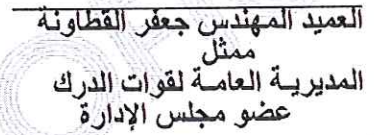 العميد المهندس جعفر القطاونة
ممثل
المديرية العامة لقوات الدرك
عضو مجلس الإدارة